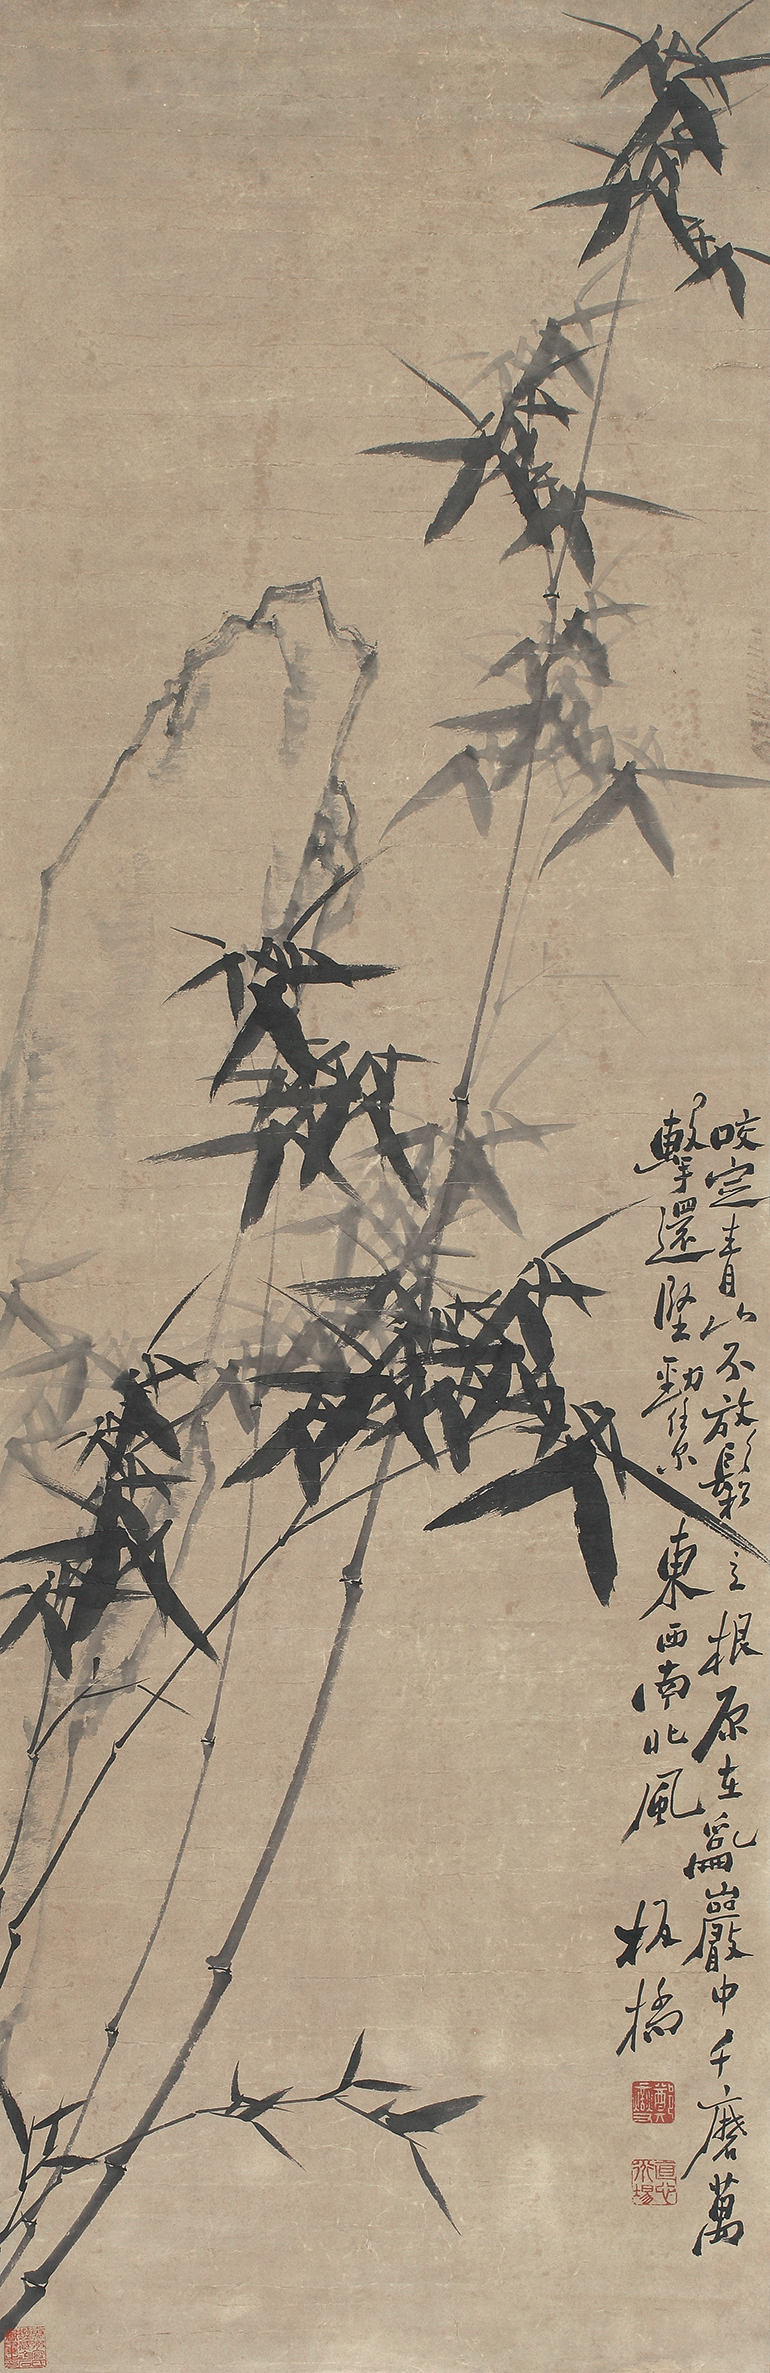 咬定青山不放鬆立根原在亂巖中千磨萬
擊還堅勁任尔東西南北風
板橋